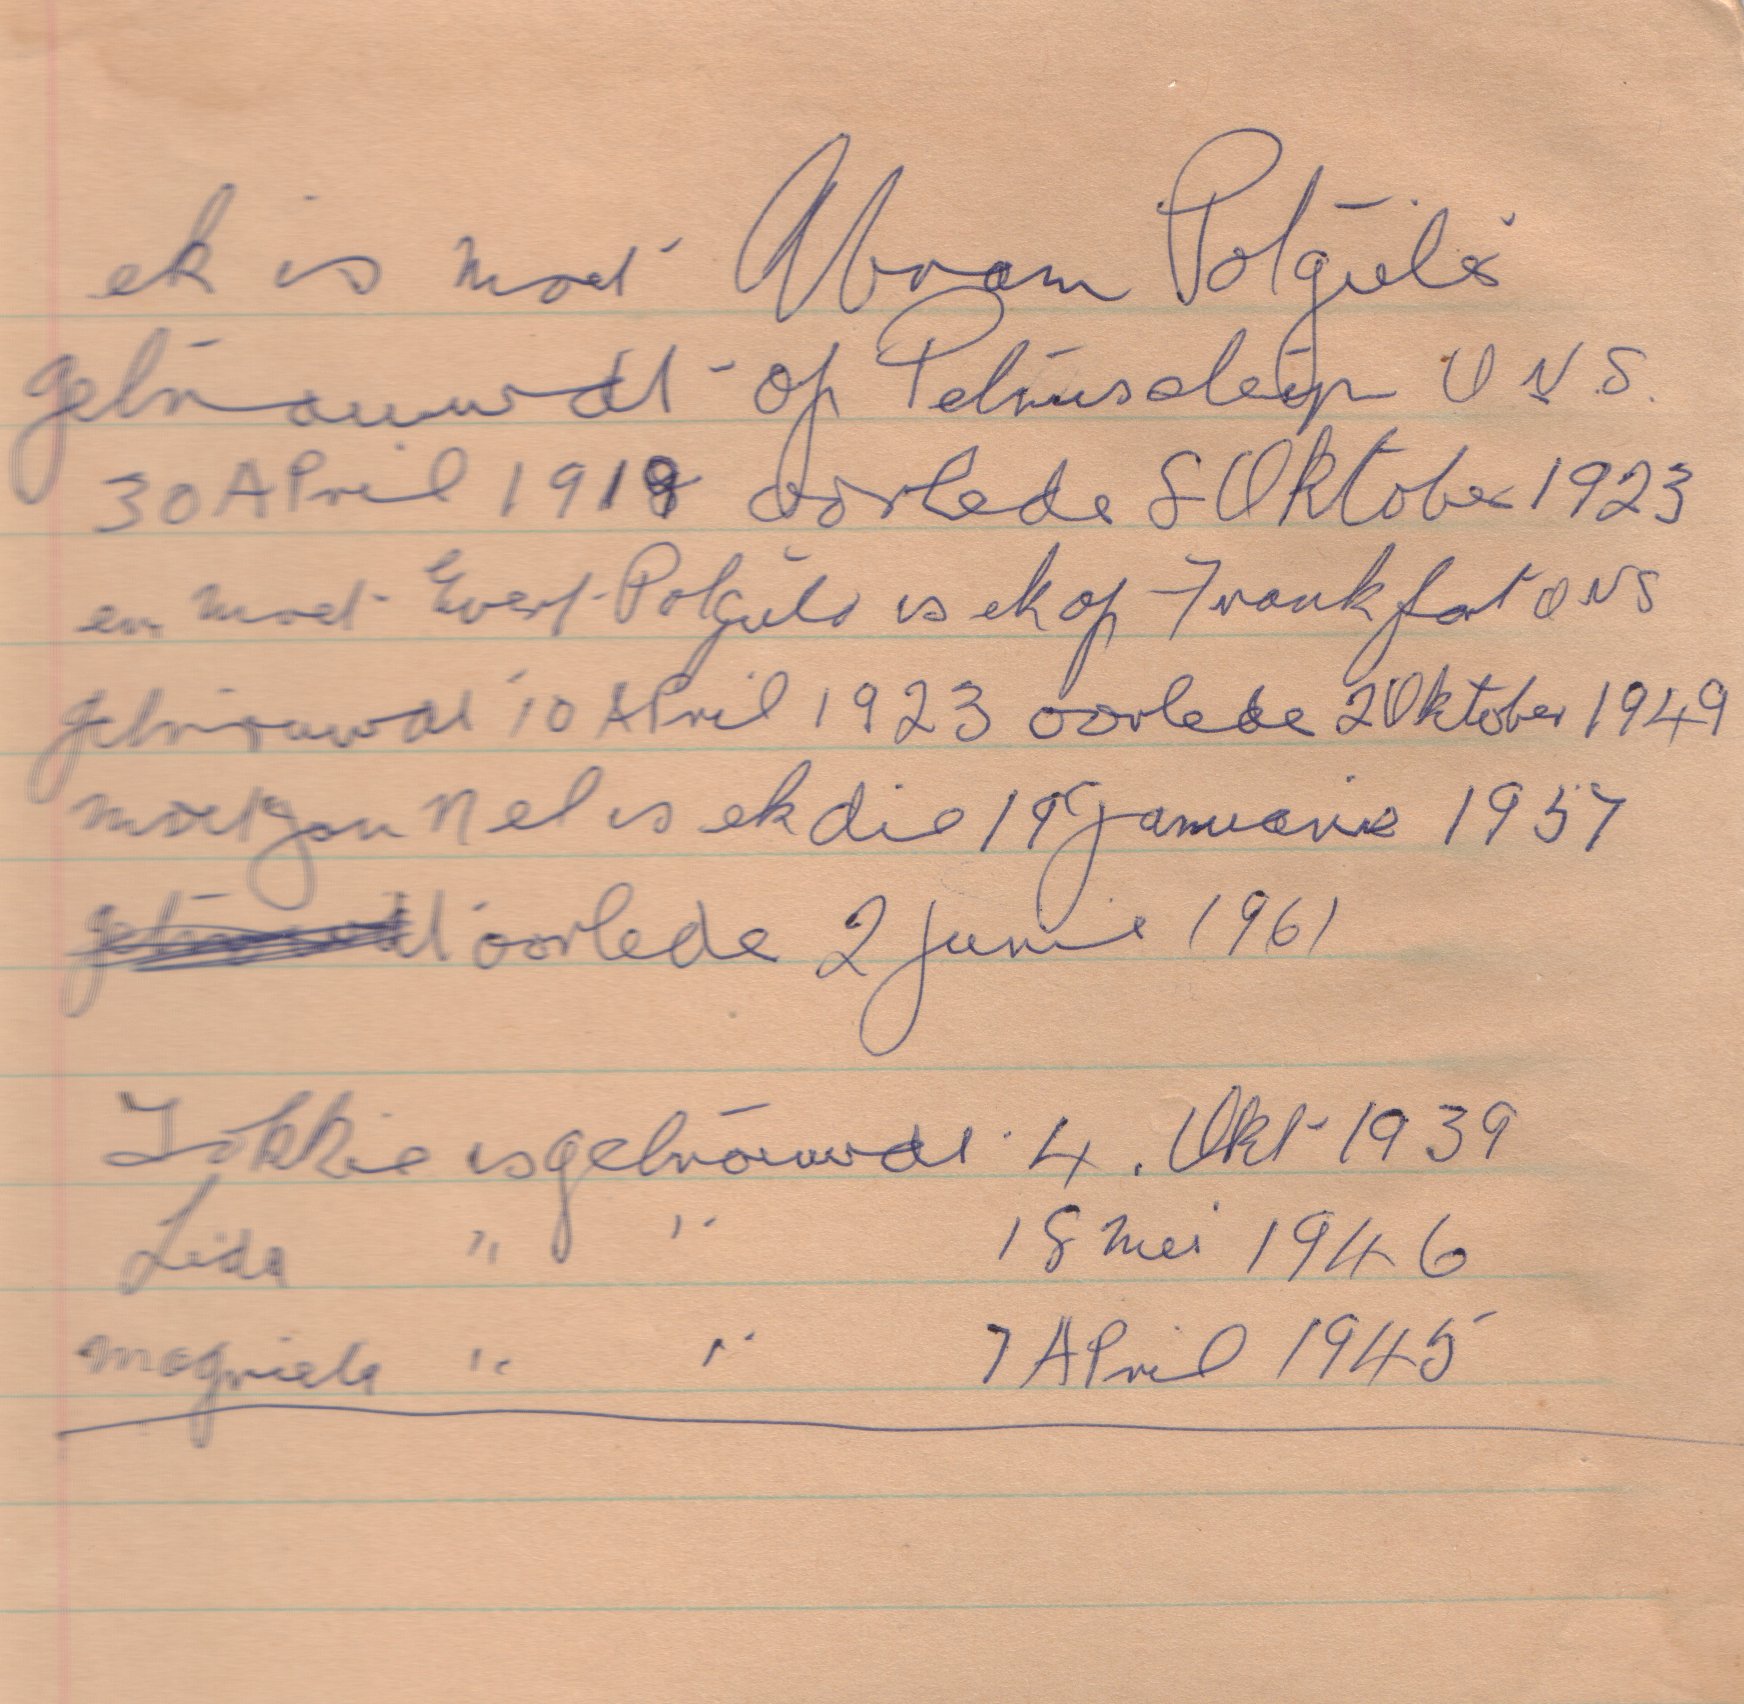 ek is met Abram Potgieter
getrouwdt op Petrussteyn O V S.
30 April 1918 oorlede 8 Oktober 1923
en met Evert Potgieter is ek op Frankfort O V S
getrouwdt 10 April 1923 oorlede 2 Oktober 1949
met Jan Nel is ek die 19 Januarie 1957
oorlede 2 Junie 1961
is getrouwdt 4. Okt 1939
Lida " " 18 Mei 1946
Magrieta " " 7 April 1945